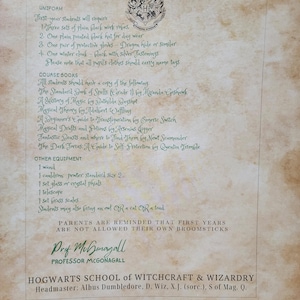 UNIFORM
First-year students will require:
1. Three sets of plain black work robes
2. One plain pointed black hat for day wear
3. One pair of protective gloves - Dragon hide or similar
4. One winter cloak - black with silver fastenings
Please note that all pupil's clothes should carry name tags
COURSE BOOKS
All students should have a copy of the following
The Standard Book of Spells Grade 1 by Miranda Goshawk
A History of Magic by Bathilda Bagshot
Magical Theory by Adalbert Waffling
A Beginner's Guide to Transfiguration by Emeric Switch
Magical Drafts and Potions by Arsenius Jigger
Fantastic Beasts and where to Find Them by Newt Scamander
The Dark Forces: A Guide to Self Protection by Quentin Trimble
OTHER EQUIPMENT
1 wand
1 cauldron pewter standard size 2
1 set glass or crystal phials
1 telescope
1 set brass scales
Students may also bring an owl OR a cat OR a toad
PARENTS ARE REMINDED THAT FIRST YEARS
ARE NOT ALLOWED THEIR OWN BROOMSTICKS
Prof McGonagall
PROFESSOR MCGONAGALL
HOGWARTS SCHOOL of WITCHCRAFT & WIZARDRY
Headmaster: Albus Dumbledore, D. Wiz, X.J. (sorc.), S of Mag. Q